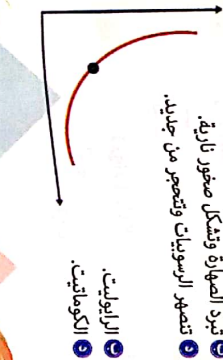 ب تبرد الصهارة وتشكل صخور نارية.
د تنصهر الرسوبيات وتتحجر من جديد.
ب الرايوليت.
د الكوماتيت.